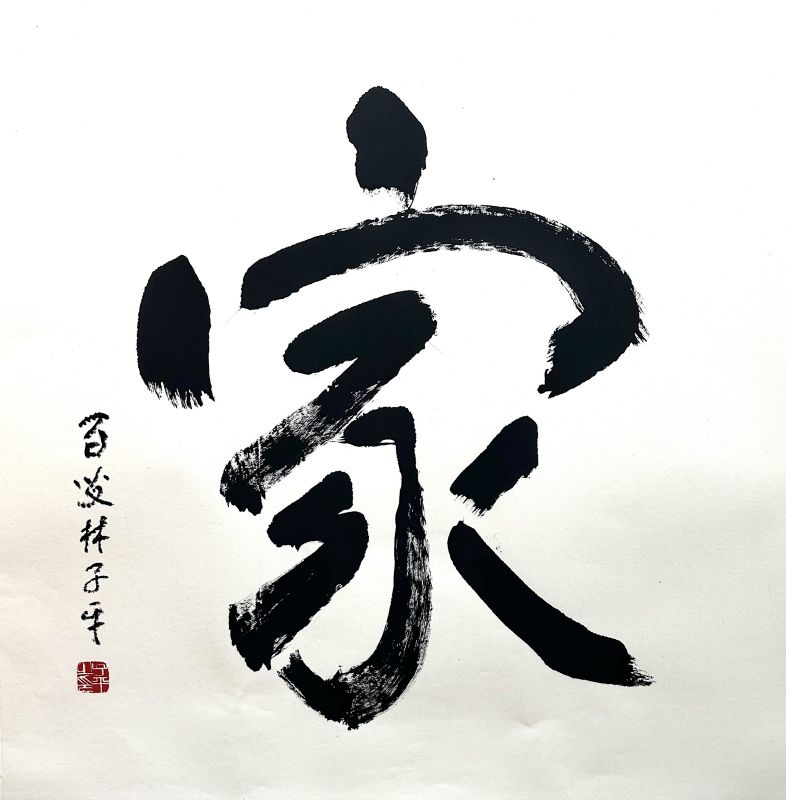 家
百忍林子平